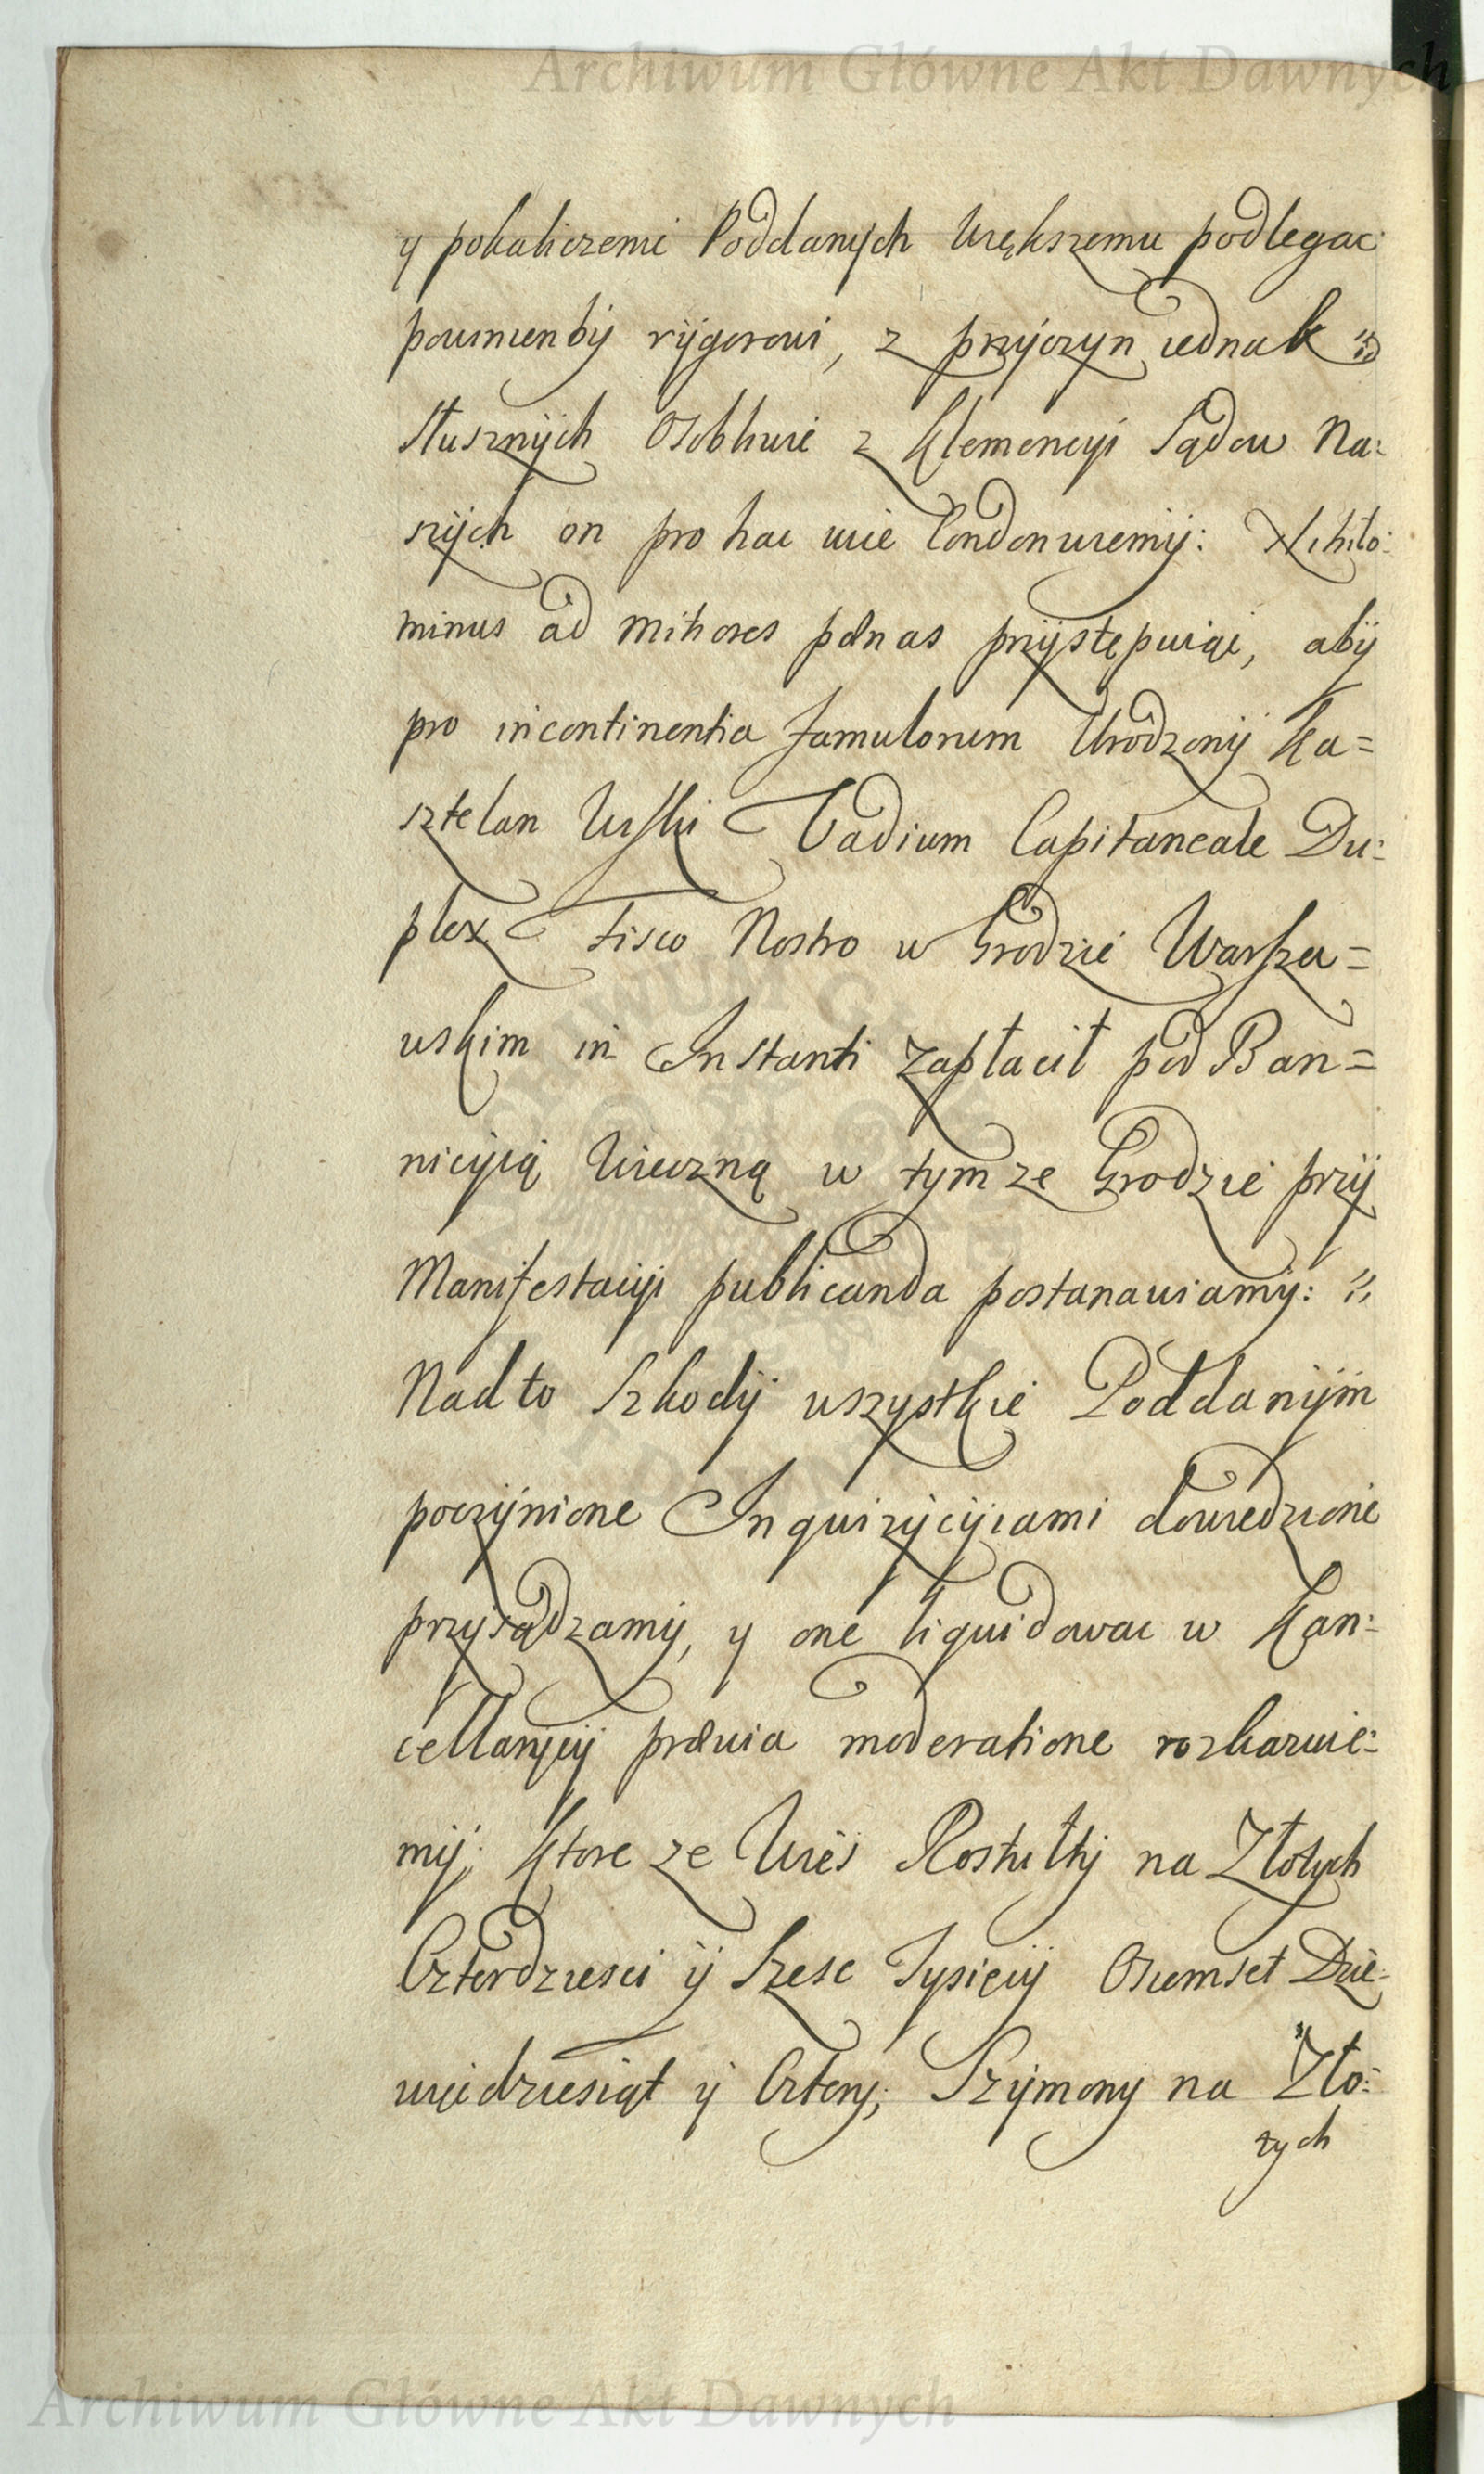 Archiwum Główne Akt Dawnych
y pokaliczenie Poddanych większemu podlegac
powinienby rygorowi, z przyczyn iednak
słusznych osobliwie z Klemencyi Sądow Na:
szych on pro hac vice Condonuiemy: Nihilo:
minus ad mitiores pœnas przystępuiąc, aby
pro incontinentia famulorum Urodzony Ka=
sztelan Wiski Vadium Capitaneale Du:
plex Fisco Nostro w Grodzie Warsza=
wskim in Instanti zapłacił pod Ban=
nicyią wieczną w tymze Grodzie przy
Manifestacyi publicanda postanawiamy: "
Nadto Szkody wszystkie Poddanym
poczynione Inquizycyiami dowiedzione
przysądzamy, y one liquidowac w Kan:
cellaryey prævia moderatione rozkazuie:
my; Ktore ze Wsi Rostułty na Złotych
Czterdziesci y Szesc Tysięcy Osiemset Dzie:
więdziesiąt y Cztery; Szymony na Zło:
tych
Archiwum Główne Akt Dawnych